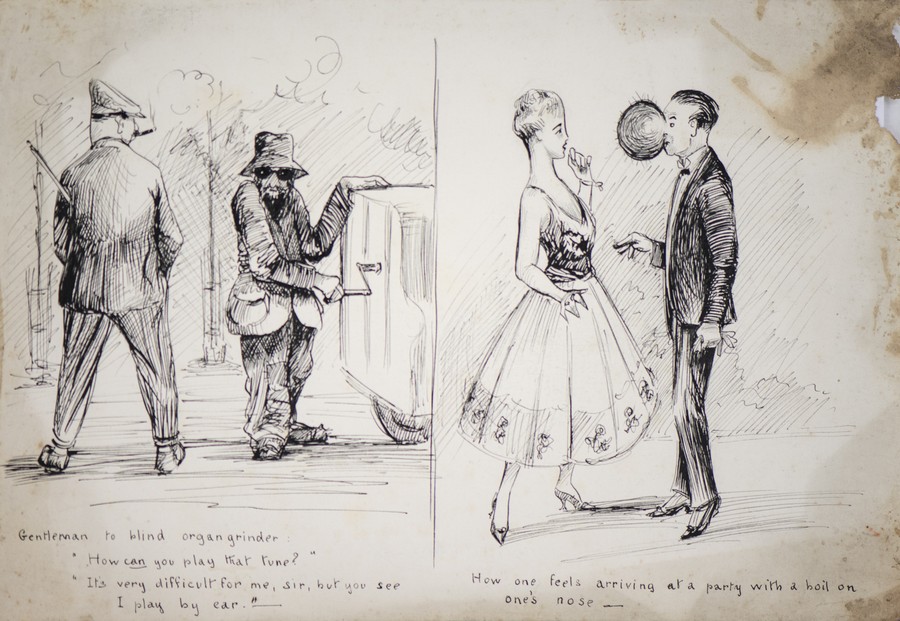 Gentleman to blind organgrinder:
"How can you play that tune?"
"It's very difficult for me, sir, but you see
I play by ear."—
How one feels arriving at a party with a boil on
one's nose —